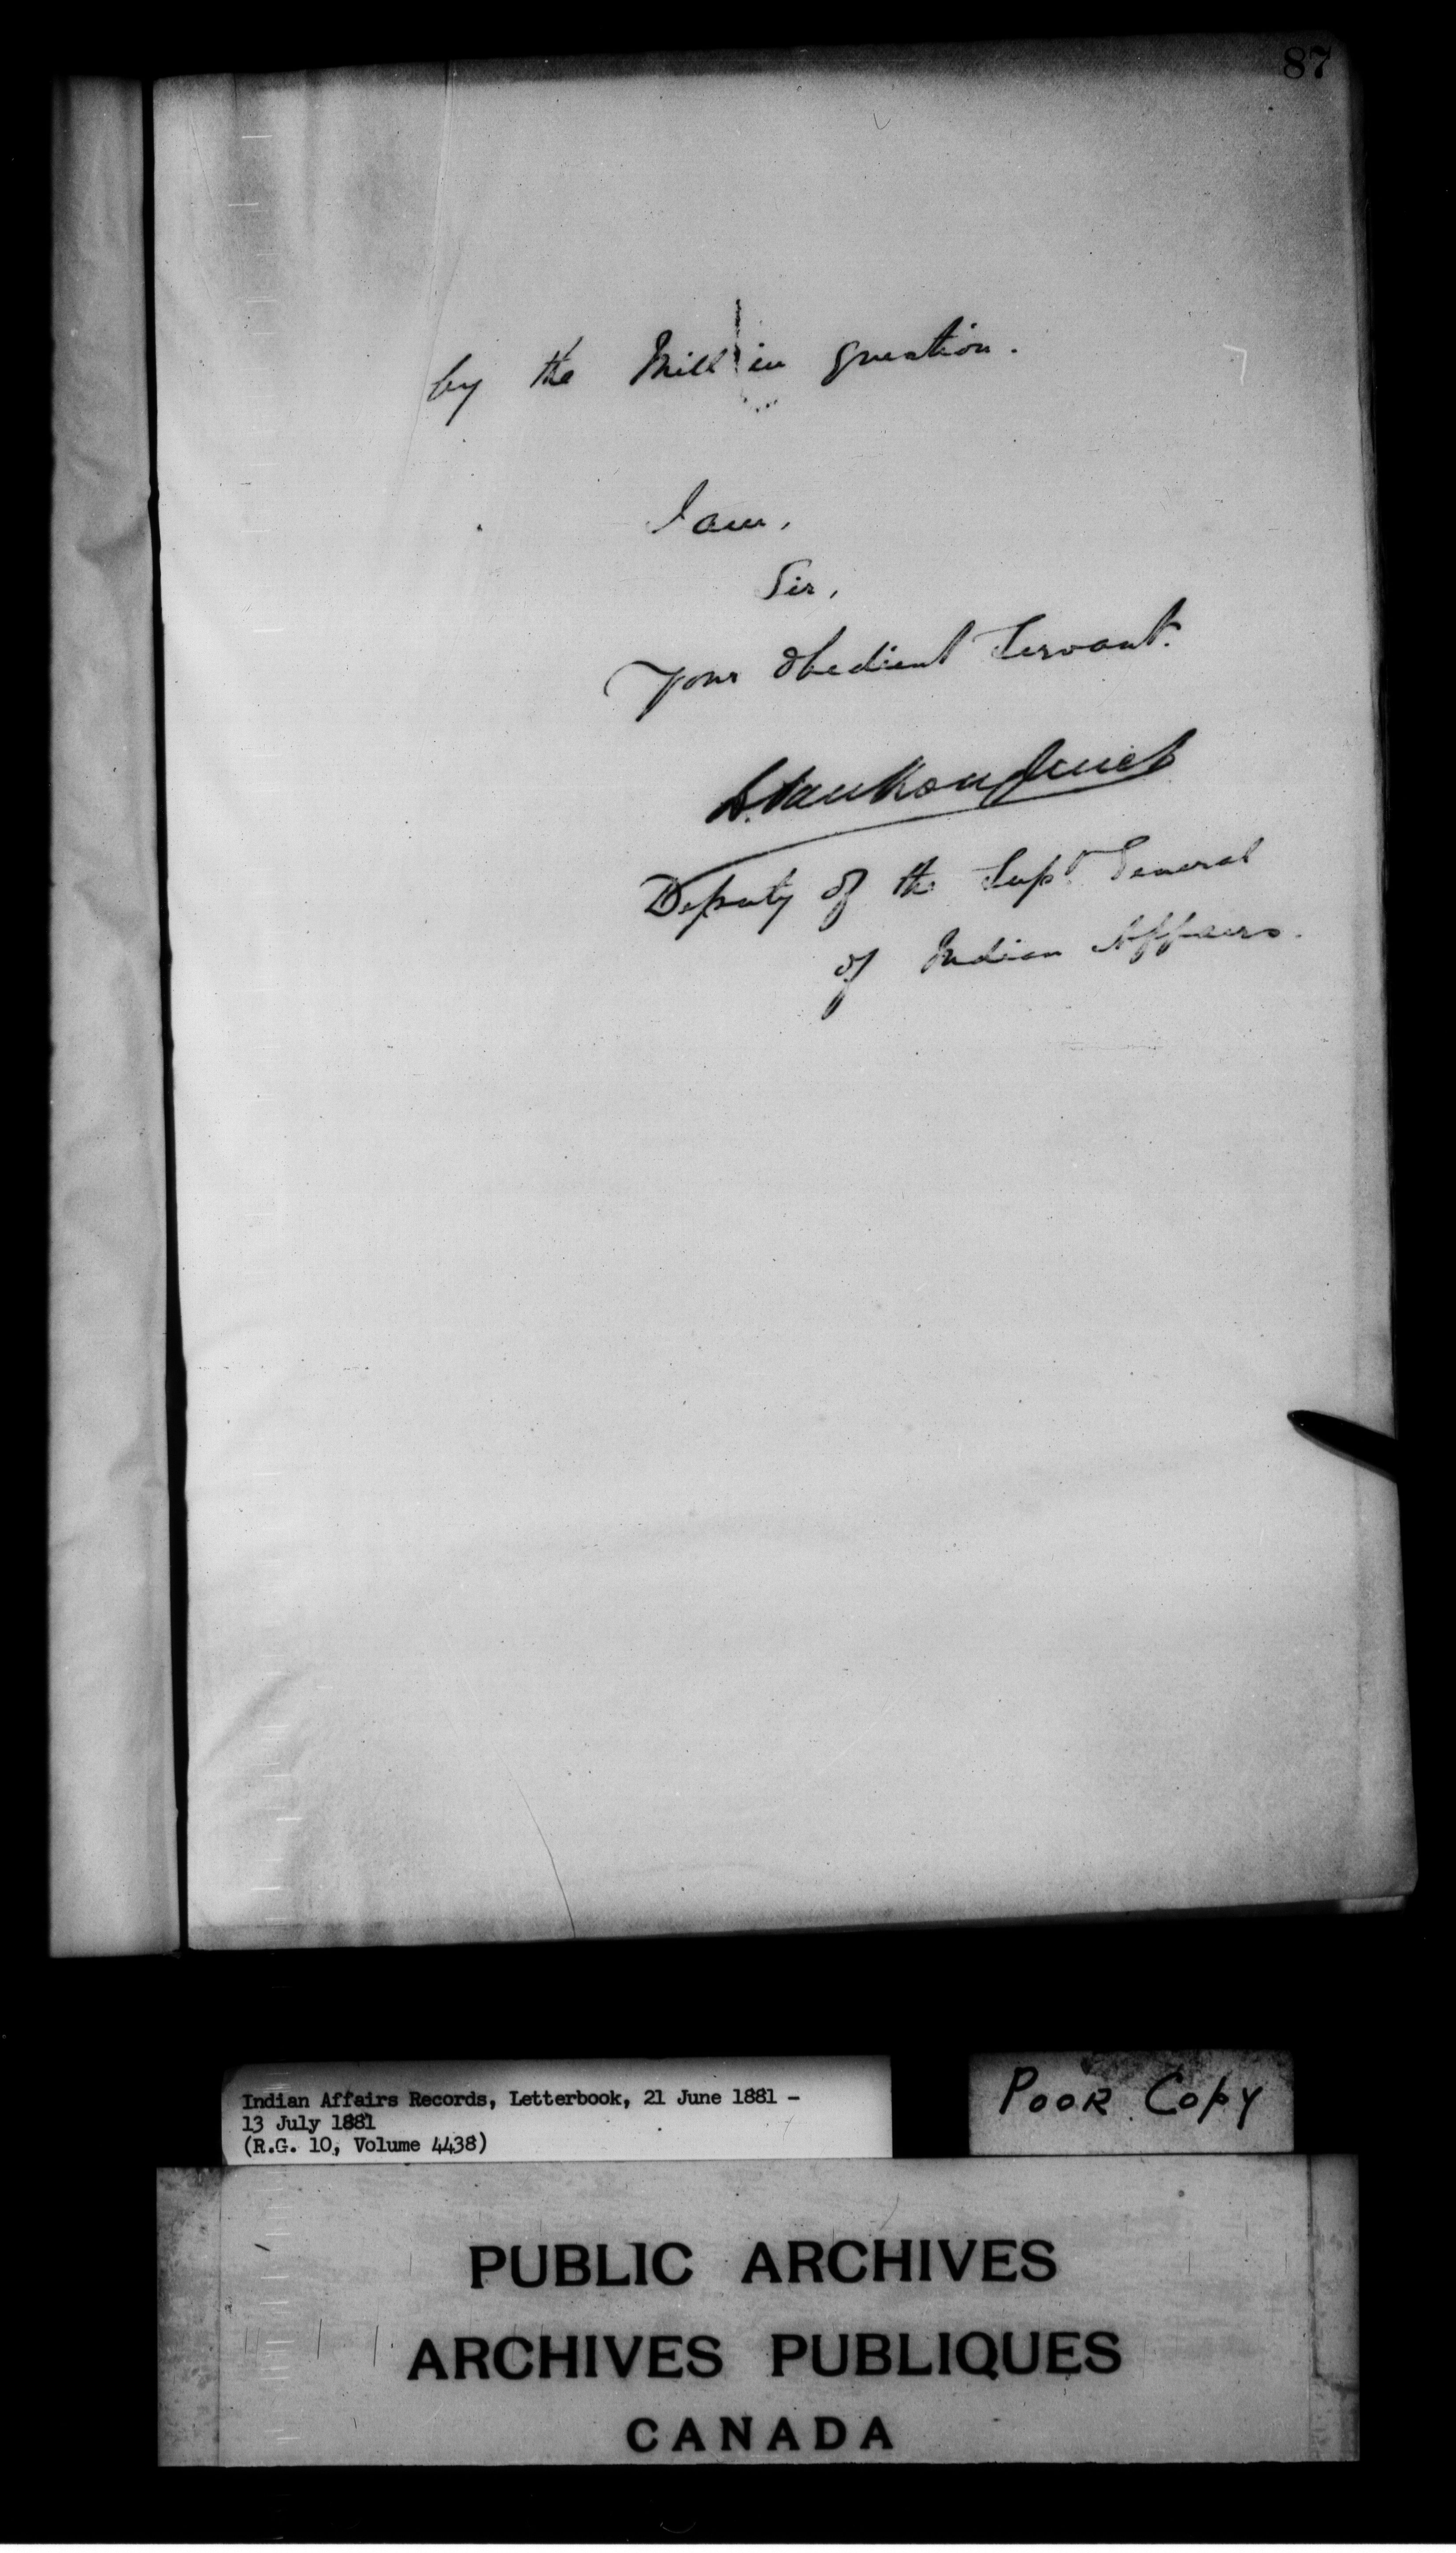 87
by the Mill in question.
I am,
Sir,
Your obedient Servant.
L. VanKoughnet
Deputy of the Supt. General
of Indian Affairs.
Indian Affairs Records, Letterbook, 21 June 1881 -
13 July 1881
(R.G. 10, Volume 4438)
POOR Copy
PUBLIC ARCHIVES
ARCHIVES PUBLIQUES
CANADA